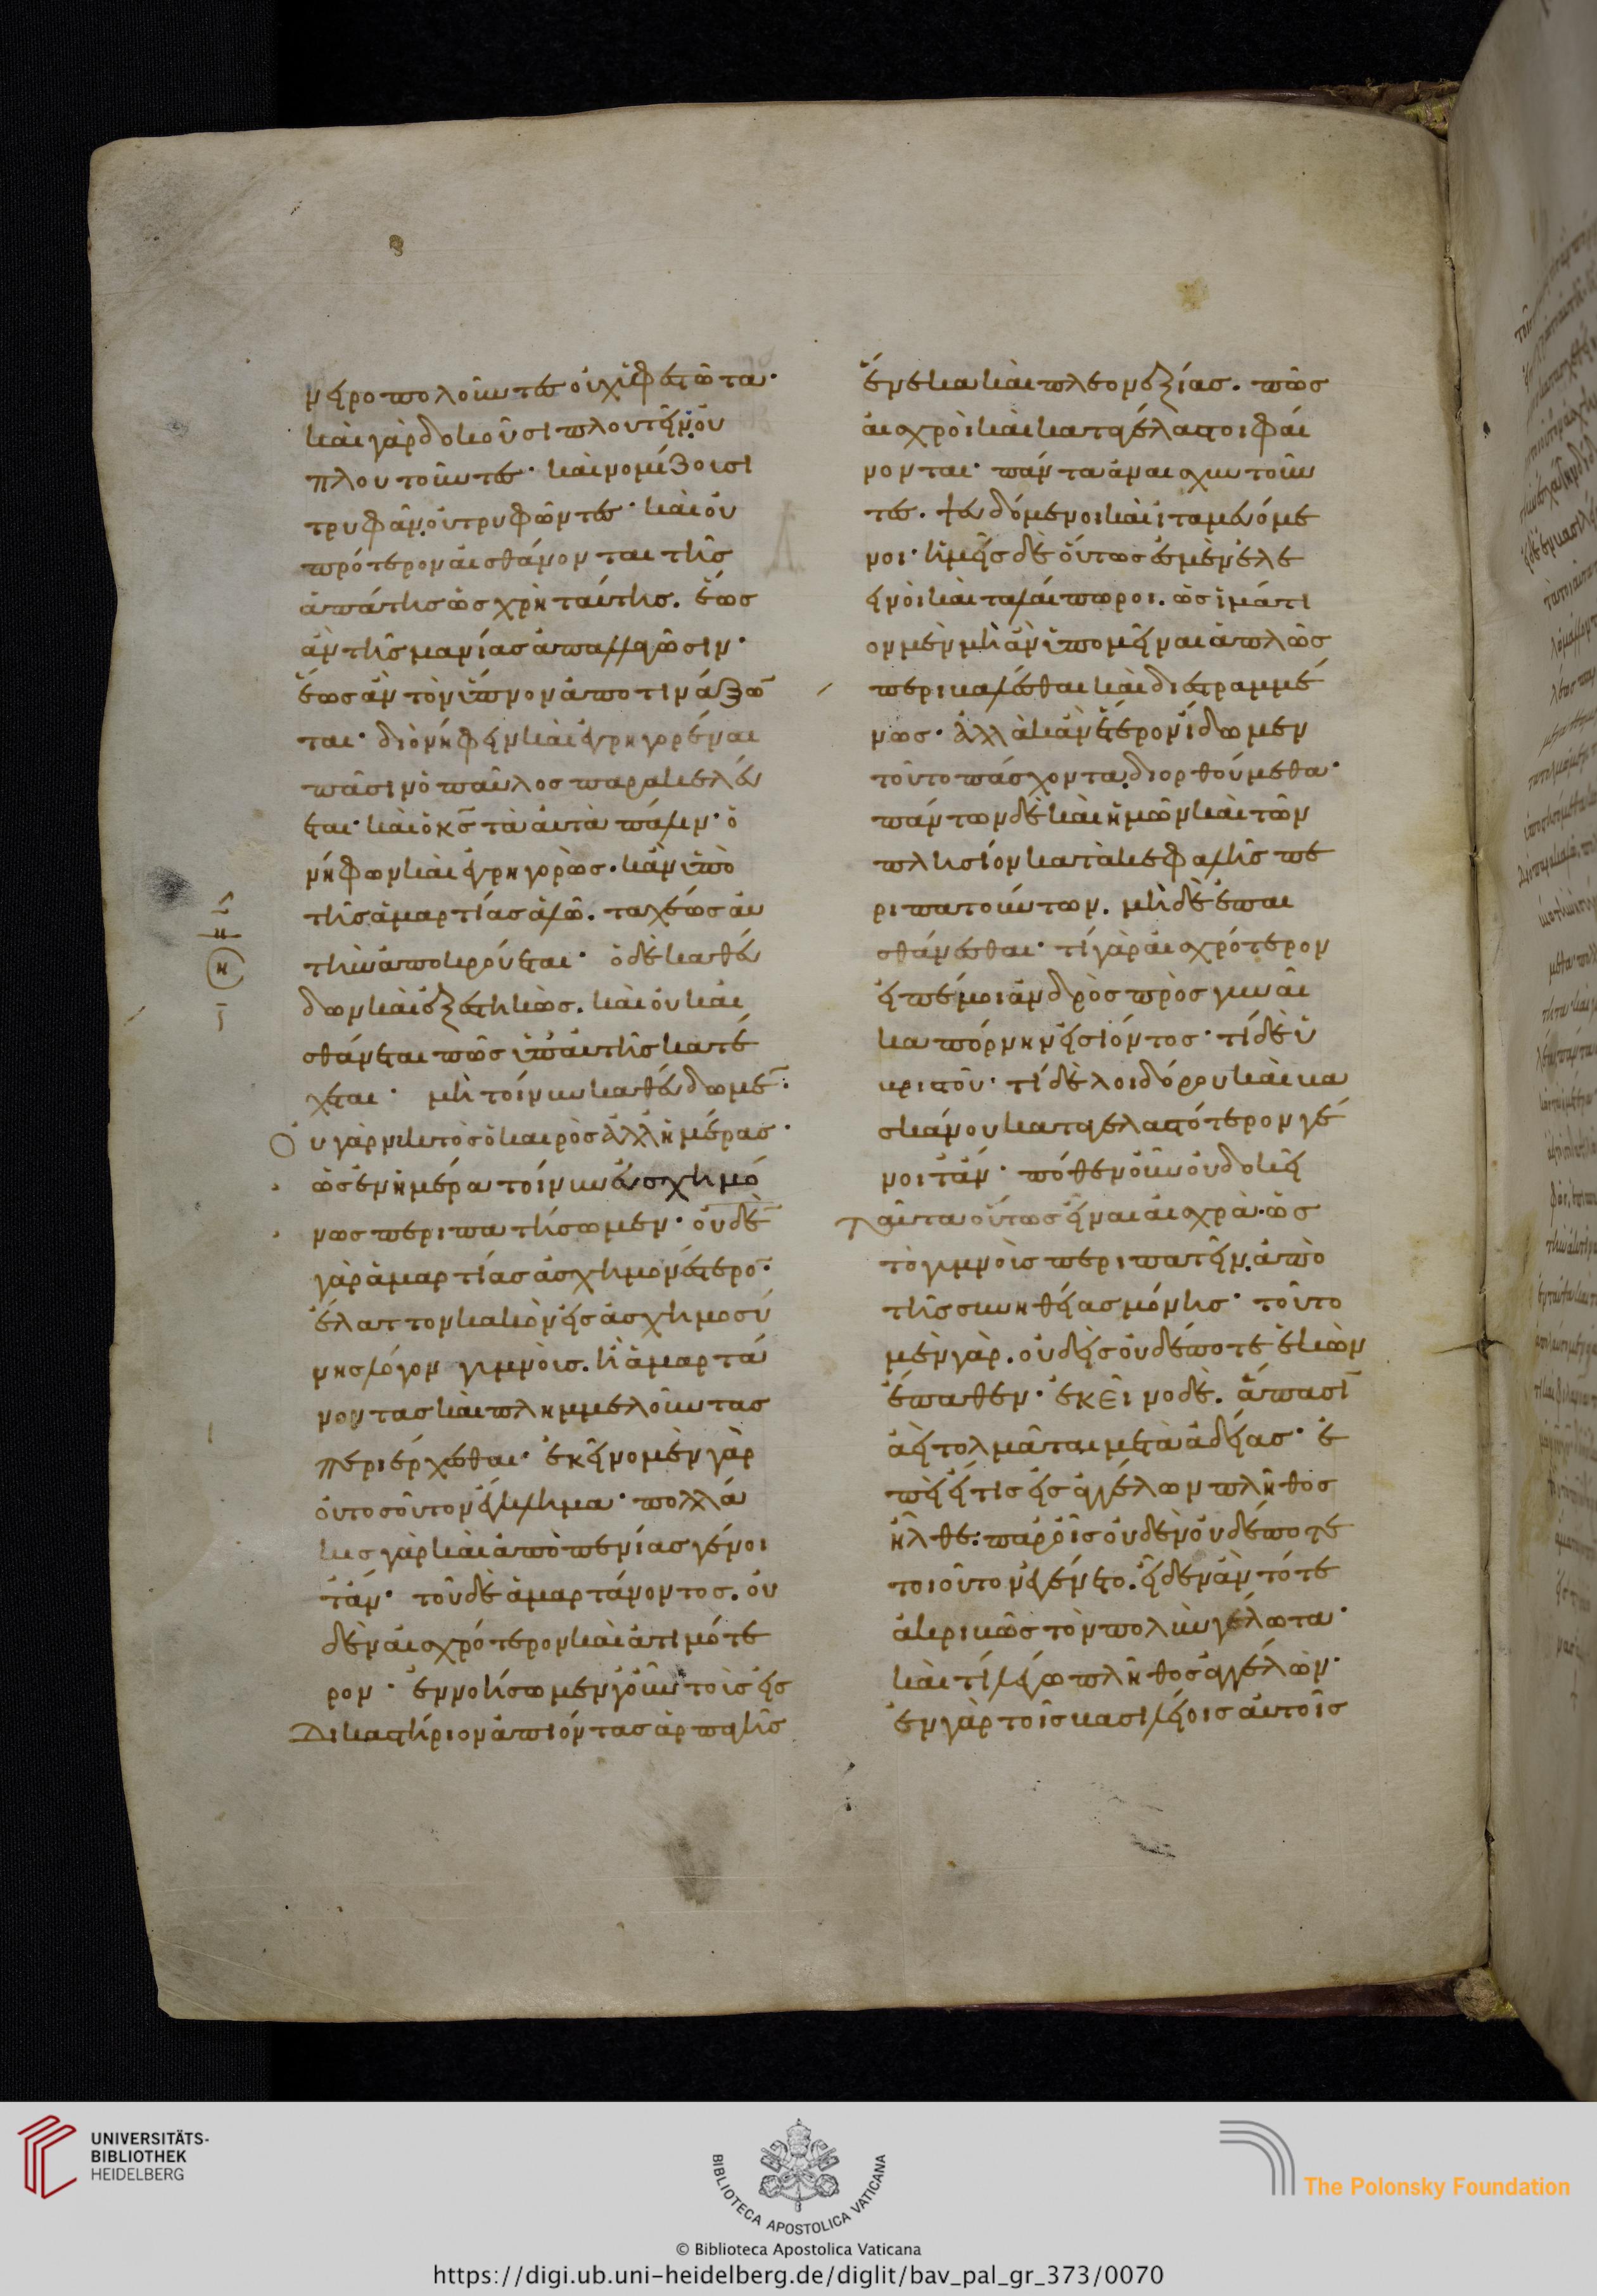 νειροπολοῦντες οὐχ ὑφεστῶτα·
καὶ γὰρ δοκοῦσι πλουτεῖν, οὐ
πλουτοῦντες· καὶ νομίζουσι
τρυφᾶν, οὐ τρυφῶντες· καὶ οὐ
πρότερον αἰσθάνονται τῆς
ἀπάτης ὡς χρὴ ταύτης. ἕως
ἂν τῆς μανίας ἀπαλλαγῶσιν·
ἕως ἂν τὸν ὕπνον ἀποτινάξω̅
ται· διὸ νήφειν καὶ ἐγρηγορέναι
πᾶσιν ὁ παῦλος παρακελεύ
εται· καὶ ὁ κ̅ς̅ τὰ αὐτὰ πάλιν· ὁ
νήφων καὶ ἐγρηγορὼς. κἂν ὑπὸ
τῆς ἁμαρτίας ἁλῶ. ταχέως αὐ
τὴν ἀποκρούεται· ὁ δὲ καθεύ
δων καὶ ἐξεστηκὼς. καὶ οὐκ αἰ
σθάνεται πῶς ὑπ' αὐτῆς κατέ
χεται· μὴ τοίνυν καθεύδωμε̅·
Οὐ γὰρ νυκτὸς ὁ καιρὸς ἀλλ' ἡμέρας·
ὡς ἐν ἡμέρα τοίνυν εὐσχημό
νως περιπατήσωμεν· οὐδὲ̅
γὰρ ἁμαρτίας ἀσχημονέστερο̅·
ἔλαττον κακὸν εἰς ἀσχημοσύ
νης λόγον γυμνοὺς. ἢ ἁμαρτά
νοντας καὶ πλημμελοῦντας
περιέρχεσθαι· ἐκεῖνο μὲν γὰρ
οὐ τοσοῦτον ἔγκλημα· πολλά
κις γὰρ καὶ ἀπὸ πενίας γένοι
τ' ἄν· τοῦ δὲ ἁμαρτάνοντος. οὐ
δὲν αἰσχρότερον καὶ ἀτιμότε
ρον· ἐννοήσωμεν γοῦν τοὺς εἰς
Δικαστήριον ἀπιόντας ἁρπαγῆς
ἕνεκα καὶ πλεονεξίας. πῶς
αἰσχροὶ καὶ καταγέλαστοι φαί
νονται· πάντα ἀναισχυντοῦν
τες. ψευδόμενοι καὶ ἰταμευόμε
νοι· ἡμεῖς δὲ οὕτως ἐσμὲν ἐλε
εινοὶ καὶ ταλαίπωροι. ὡς ἱμάτι
ον μὲν μὴ ἂν ὑπομεῖναι ἁπλῶς
περιβαλέσθαι καὶ διεστραμμέ
νως· ἀλλὰ κἂν ἕτερον ἴδωμεν
τοῦτο πάσχοντα, διορθούμεθα·
πάντων δὲ καὶ ἡμῶν καὶ τῶν
πλησίον κατὰ κεφαλῆς πε
ριπατούντων. μηδὲ ἐπαι
σθάνεσθαι· τί γὰρ αἰσχρότερον
εἰπέ μοι ἀνδρὸς πρὸς γυναῖ
κα πόρνην εἰσιόντος· τί δὲ ὑ
βριστοῦ· τί δὲ λοιδόρου καὶ βα
σκάνου καταγελαστότερον γέ
νοιτ' ἄν· πόθεν οὖν οὐ δοκεῖ
ταῦτα οὕτως εἶναι αἰσχρὰ· ὡς
τὸ γυμνοὺς περιπατεῖν, ἀπὸ
τῆς συνηθείας μόνης· τοῦτο
μὲν γὰρ. οὐδεὶς οὐδέποτε ἑκὼν
ἔπαθεν· ἐκεῖνο δὲ. ἅπασι̅
ἀεὶ τολμᾶται μετὰ ἀδείας· ἐ
πεὶ εἴ τις εἰς ἀγγέλων πλῆθος
ἦλθε· παρ' οἷς οὐδὲν οὐδέποτε
τοιοῦτον ἐγένετο. εἶδεν ἂν τότε
ἀκριβῶς τὸν πολὺν γέλωτα·
καὶ τί λέγω πλῆθος ἀγγέλων·
ἐν γὰρ τοῖς βασιλείοις αὐτοῖς
UNIVERSITÄTS-
BIBLIOTHEK
HEIDELBERG
BIBLIOTECA APOSTOLICA VATICANA
The Polonsky Foundation
© Biblioteca Apostolica Vaticana
https://digi.ub.uni-heidelberg.de/diglit/bav_pal_gr_373/0070